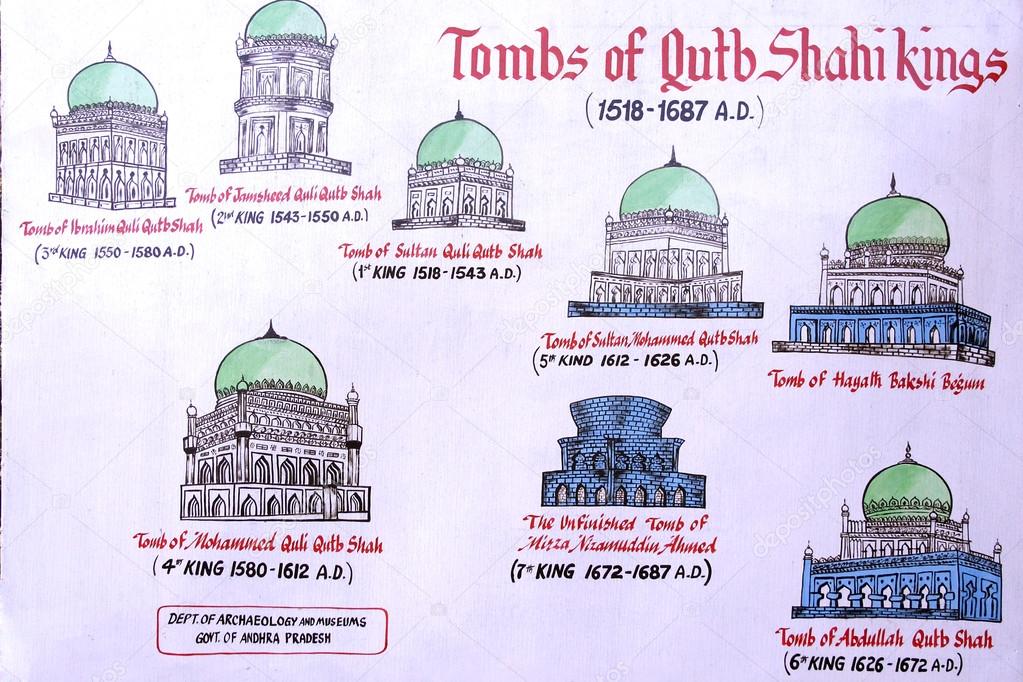 Tombs of Qutb Shahi kings
(1518-1687 A.D.)
Tomb of Ibrahim Quli Qutb Shah
(3rd KING 1550-1580 A.D.)
Tomb of Jamsheed Quli Qutb Shah
(2nd KING 1543-1550 A.D.)
Tomb of Sultan Quli Qutb Shah
(1st KING 1518-1543 A.D.)
Tomb of Sultan Mohammed Qutb Shah
(5th KIND 1612-1626 A.D.)
Tomb of Hayath Bakshi Begum
Tomb of Mohammed Quli Qutb Shah
(4th KING 1580-1612 A.D.)
The Unfinished Tomb of
Mirza Nizamuddin Ahmed
(7th KING 1672-1687 A.D.)
Tomb of Abdullah Qutb Shah
(6th KING 1626-1672 A.D.)
DEPT. OF ARCHAEOLOGY AND MUSEUMS
GOVT. OF ANDHRA PRADESH
depositphotos